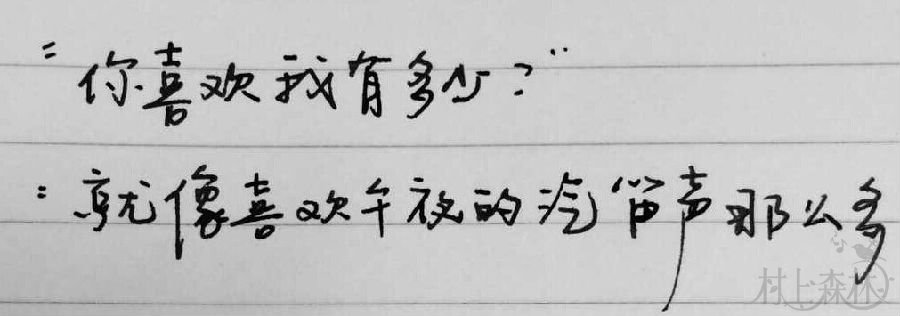 “你喜欢我有多少？”
：就像喜欢午夜的汽笛声那么多
村上森林